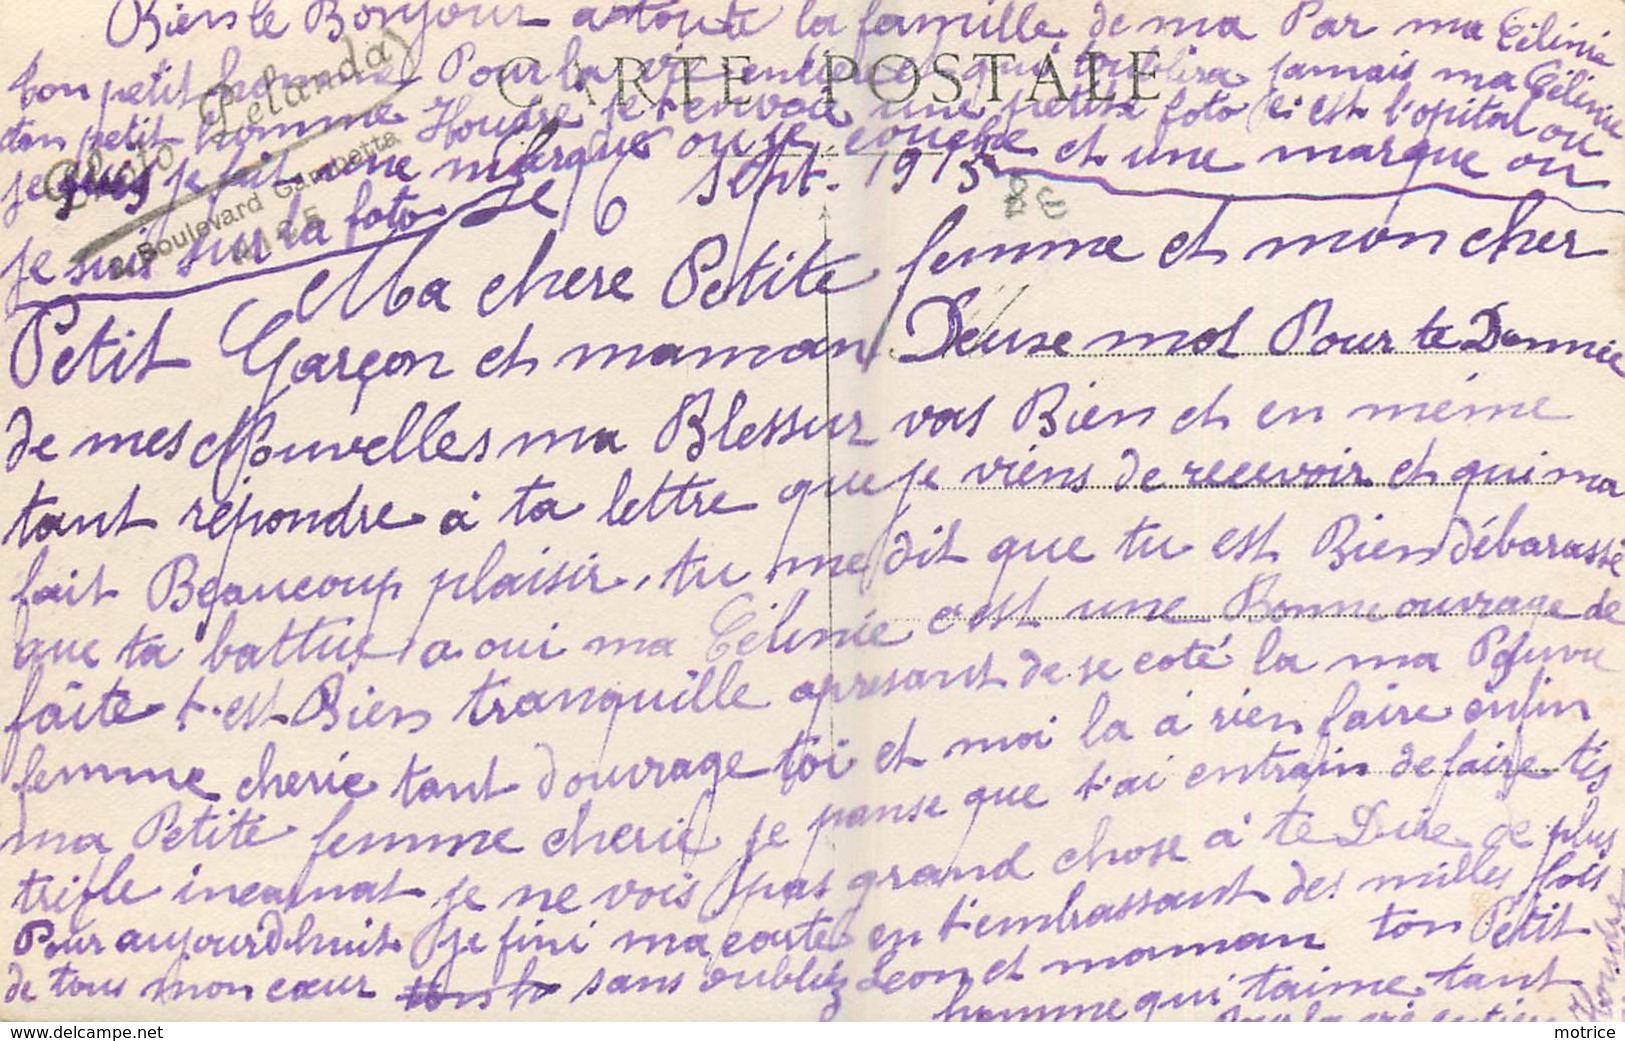 Bien le Bonjour a toute la famille de ma Par ma Célinie
ton petit homme Pour la vie entière et qui t'oublira jamais ma Célinie
CARTE POSTALE
ton petit homme Houdre je t'envoie une petite foto c'est l'opital ou
je suis je fait une marque ou je couche et une marque ou
je suis sur la foto
Photo Lelanda
Boulevard Gambetta
Le 6 Sept. 1915
Ma chere Petite femme et mon cher
Petit Garçon et maman Deuse mot Pour te Donnée
de mes Nouvelles ma Blessur vas Bien et en méme
tant répondre á ta lettre que je viens de recevoir et qui ma
fait Beaucoup plaisir, tu me dit que tu est Bien débarassé
que ta battue a oui ma Célinie c'est une Bonne ouvrage de
faite t'est Bien tranquille apresant de se coté la ma Pauvre
femme cherie tant d'ouvrage toi et moi la á rien faire enfin
ma Petite femme cherie je panse que t'ai entrain de faire tes
trifle incarnat je ne vois pas grand chose á te Dire de plus
Pour aujourd'huit je fini ma carte en t'embrassant des milles fois
de tous mon cœur sans oubliez Leon et maman ton Petit
homme qui t'aime tant
Pour la vie entière
Houdre
motrice